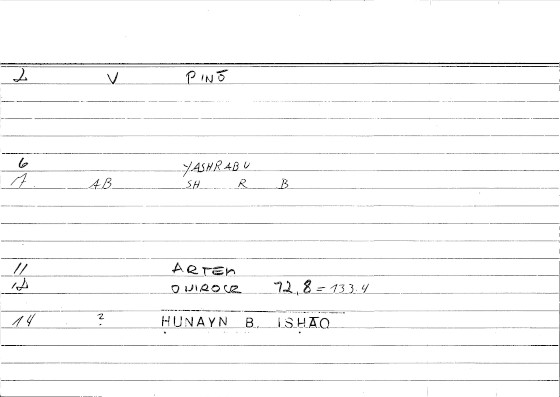 2 V PINŌ
6 YASHRABU
7 AB SH R B
11 ARTEM
12 72,8 = 133.4
14 ? ḤUNAYN B. ISḤĀQ